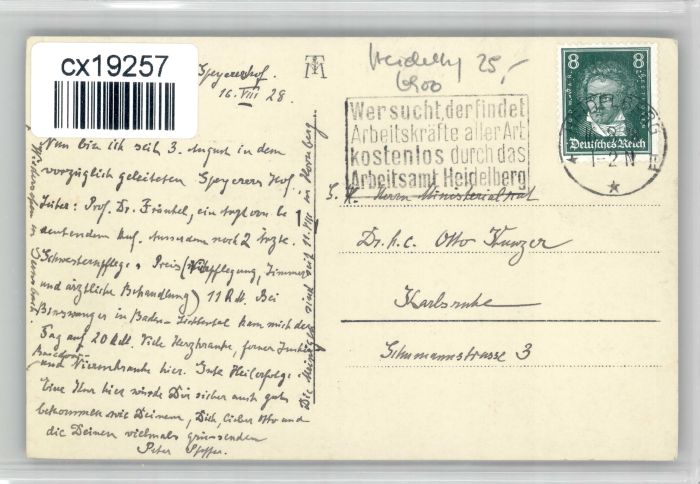 cx19257
Speyererhof.
16. VIII 28.
Heidelbg 25,-
6900
Wer sucht, der findet
Arbeitskräfte aller Art
kostenlos durch das
Arbeitsamt Heidelberg
8 8
Deutsches Reich
1-2 N
Nun bin ich seit 3. August in dem
vorzüglich geleiteten Speyerers Hof.
Leiter: Prof. Dr. Fränkel, ein Arzt von be
deutendem Ruf. Ausserdem noch 2 Ärzte.
Schwesternpflege. Preis (Verpflegung, Zimmer
und ärztliche Behandlung) 11 R.M. Bei
in Baden-Lichtental kam mich der
Tag auf 20 R.M. Viele Herzkranke, ferner
und Nierenkranke hier. Gute Heilerfolge.
Eine Kur hier würde Dir sicher auch gut
bekommen wie Deinem, Dich, lieber Otto und
die Deinen vielmals grüssenden
Peter Pfeffer.
Die Meinigen sind seit 11. VIII in Hornberg
S. H. Herrn Ministerialrat
Dr. h. c. Otto Kunzer
Karlsruhe
Schumannstrasse 3